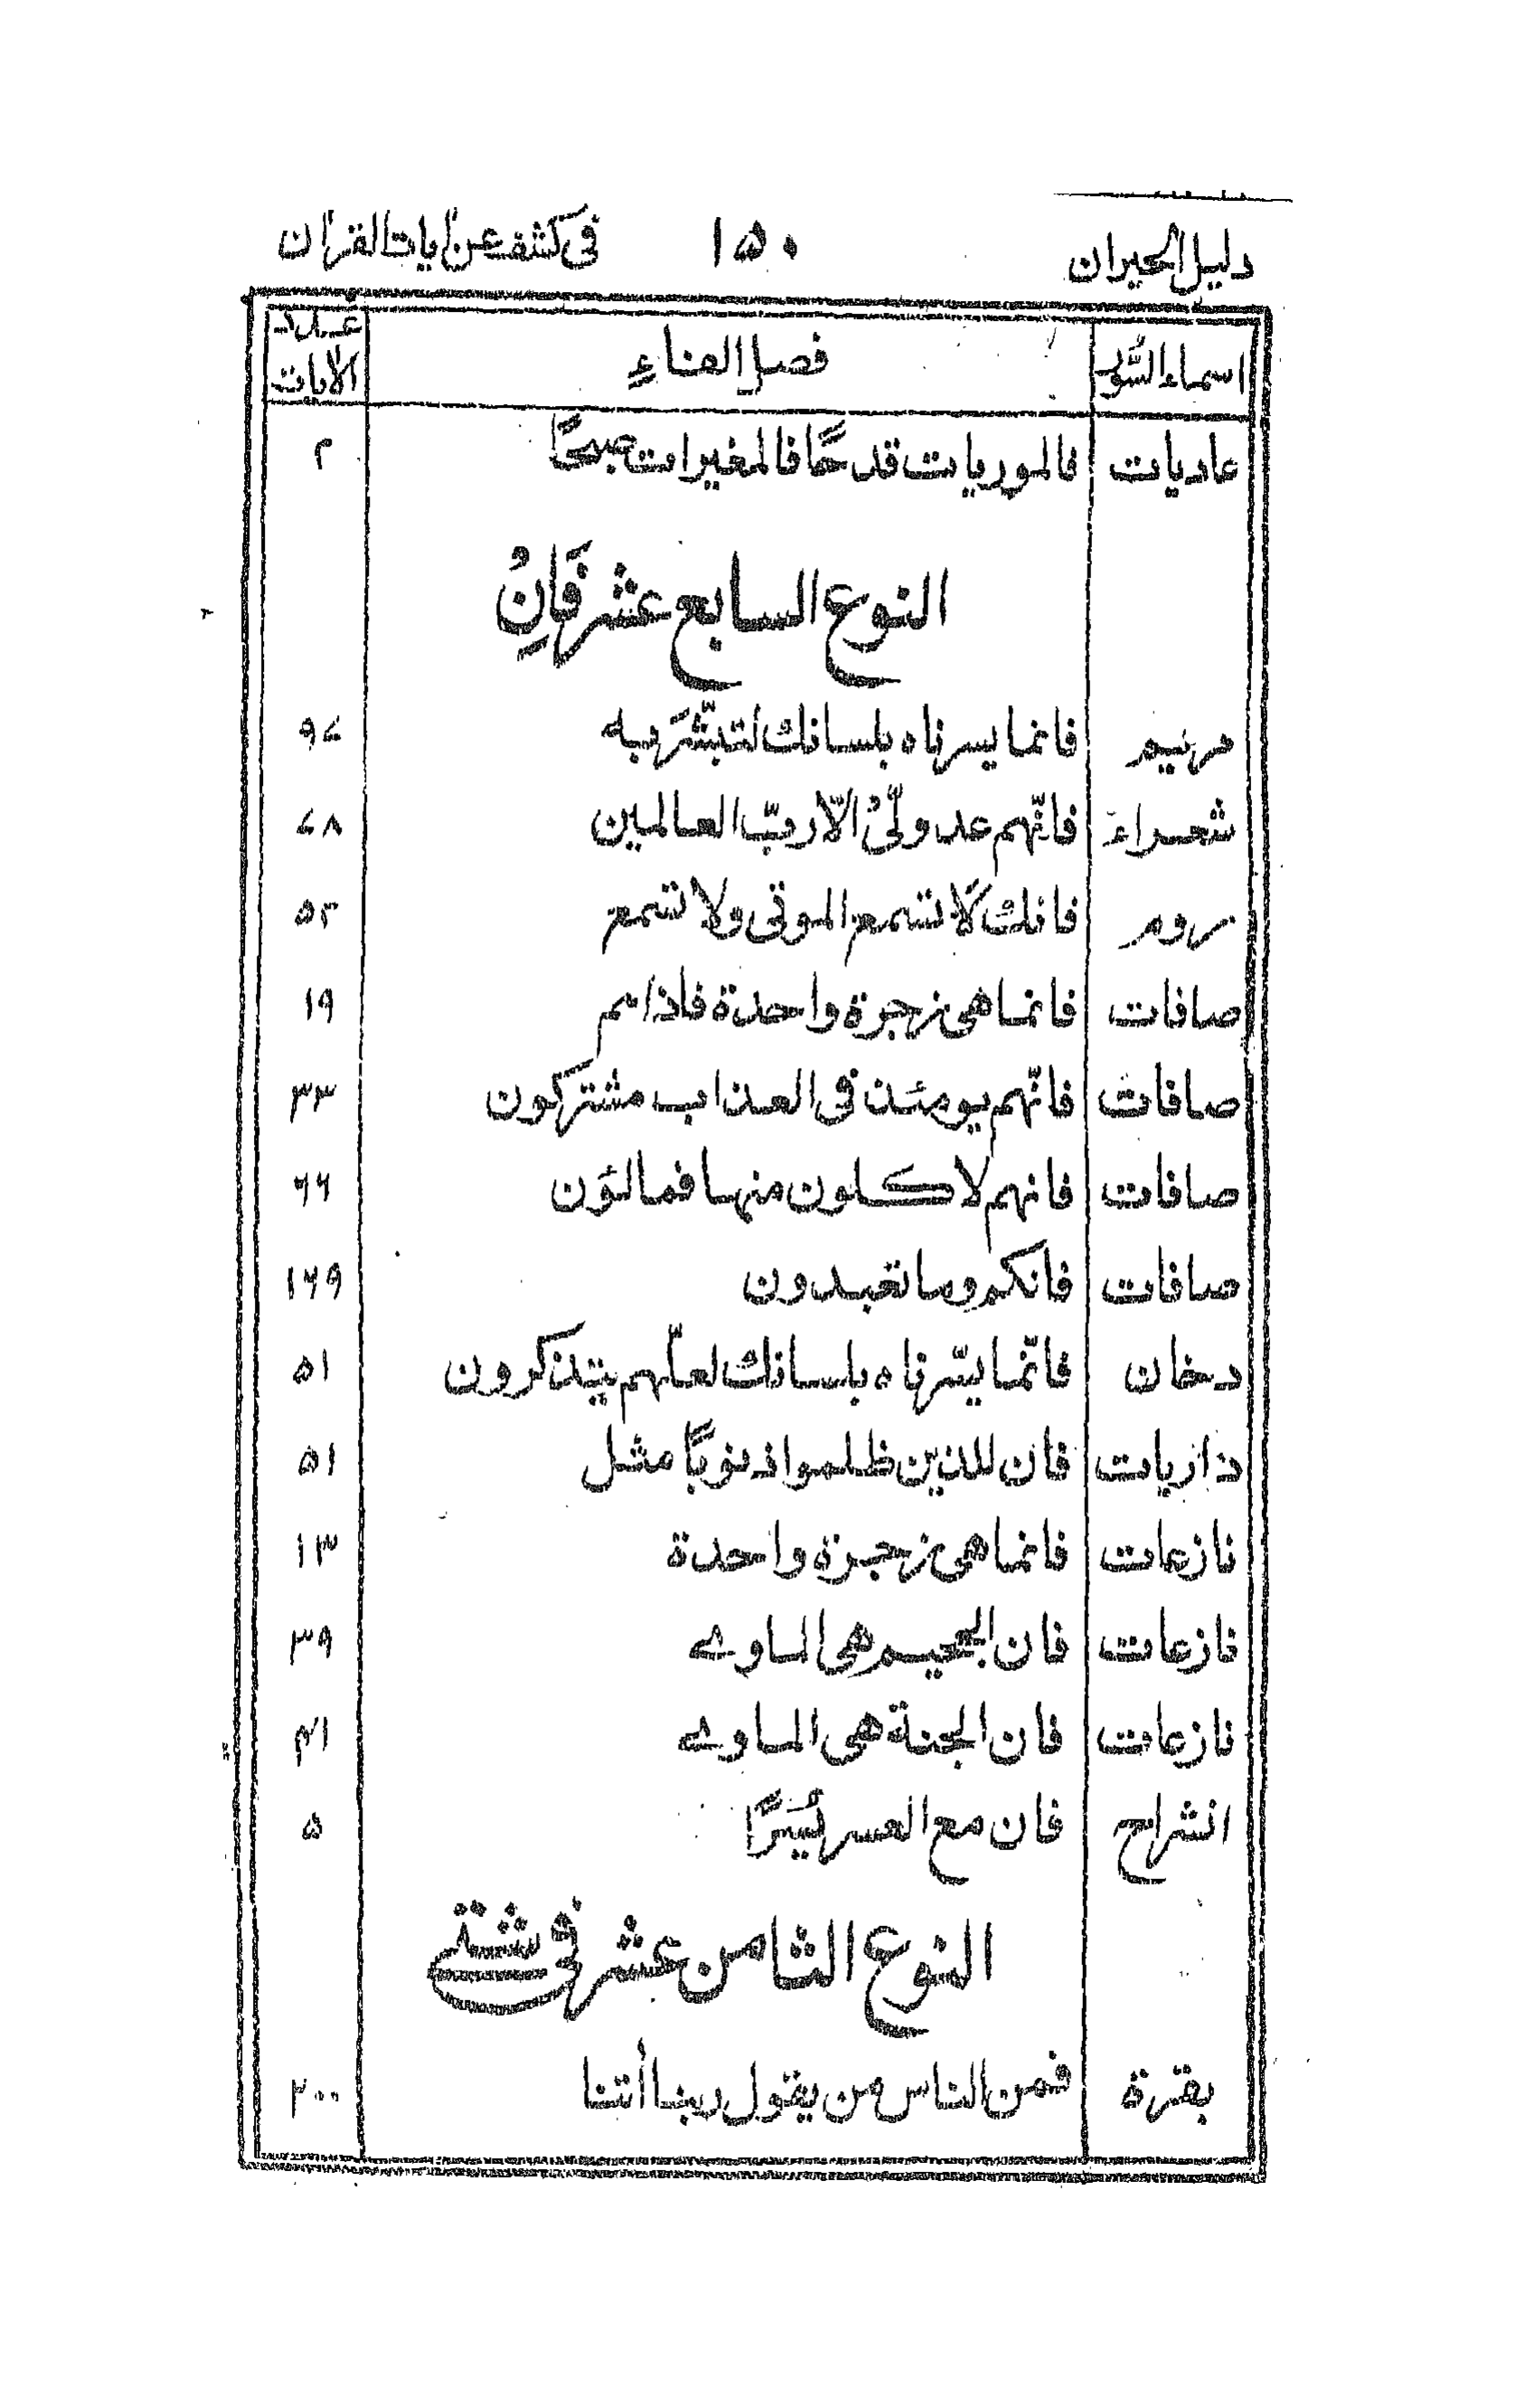 دليل الحيران ١٥٠ فى كشف عن اٰيات القراٰن
اسماء السّور فصل الفاءِ عدد الاٰيات
عاديات فالموريات قدحًا فالمغيرات صبحًا ٢
النوع السابع عشر فَاِنْ
مريم فانما يسرناه بلسانك لتبشّرَ به ٩٧
شعراء فانّهم عدو لّىْ الّا ربّ العالمين ٧٨
روم فانك لا تسمع الموتى ولا تسمع ٥٢
صافات فانما هى زجرة واحدة فاذا هم ١٩
صافات فانّهم يومئذ فى العذاب مشتركون ٣٣
صافات فانهم لاكلون منها فمالئون ٦٦
صافات فانكم وما تعبدون ١٦٩
دخان فانّما يسّرناه بلسانك لعلّهم يتذكرون ٥١
ذاريات فان للذين ظلموا ذنوبًا مثل ٥١
نازعات فانما هى زجرة واحدة ١٣
نازعات فان الجحيم هى الماوے ٣٩
نازعات فان الجنة هى الماوے ٤١
انشراح فان مع العسر يُسْرًا ٥
النوع الثامن عشر فى شتى
بقرة فمن الناس من يقول ربنا أتنا ٢٠٠